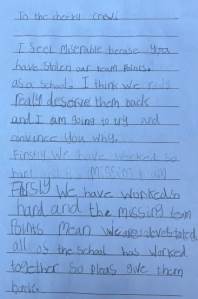 To the cheeky crew.
I feel miserable because you
have stolen our team Points.
as a school I think we
realy deserve them back
and I am going to try and
convince you why.
Firstly we have worked so
hard
Firsly We have worked so
hard and the missing team
Points mean We are
all of the school has worked
together so pleas give them
back.